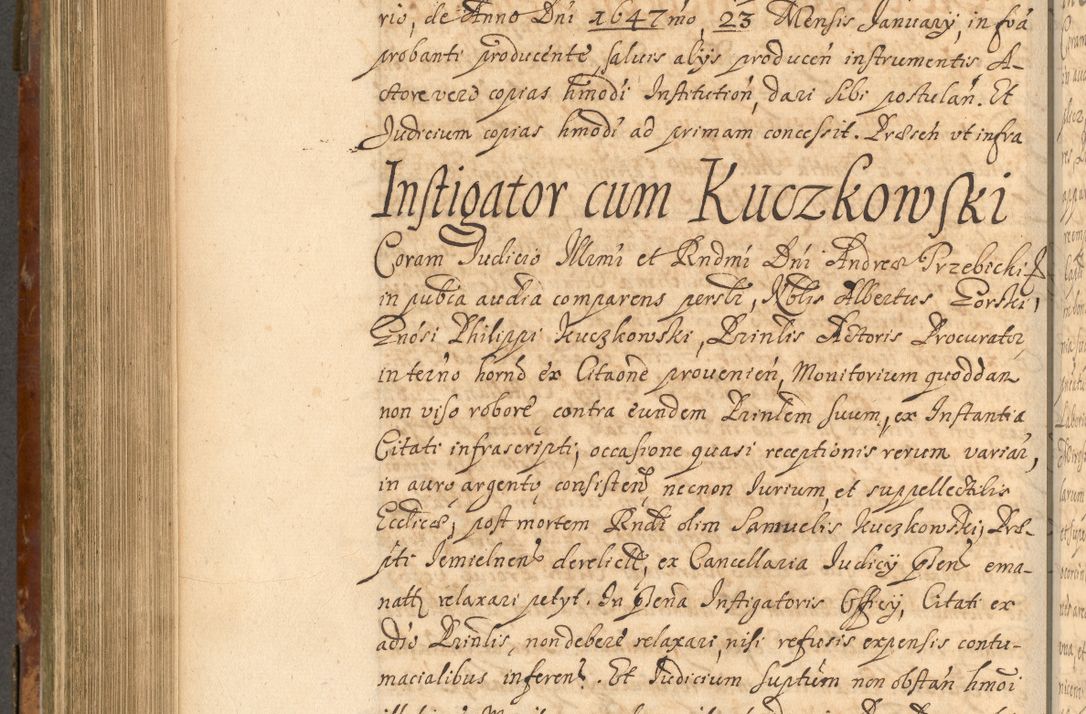 rio, de Anno Dni 1647mo, 23 Mensis January, in fva
probanti producente, salvis alijs producen̄ instrumentis A-
ctore vero copias hmōdi Institution̄, dari sibi postulan̄. Et
Judicium copias hmōdi ad primam concessit. Præsen̄ vt infra
Instigator cum Kuczkowski
Coram Judicio Illmi et Rndmi Dni Andreæ Trzebicki
in publca audia comparens persli, Nblis Albertus Gorski,
Gnosi Philippi Kuczkowski, Prinlis Actoris Procurator
in terno horno ex Citaone provenien̄, Monitorium quoddam
non viso robore contra eundem Prinlem suum, ex Instantia
Citati infrascripti, occasione quasi receptionis rerum variar,
in auro argento consisten, necnon Iurium, et suppellectilis
Ecclicæ, post mortem Rndi olim Samuelis Kuczkowski, Præ-
pti Iemielnen derelict, ex Cancellaria Iudicij pñen ema-
natt relaxari petyt. In pñena Instigatoris Officij, Citati ex
adio Prinlis, non debere relaxari, nisi refusis expensis contu-
macialibus inferen. Et Iudicium suptum non obstan hmōi